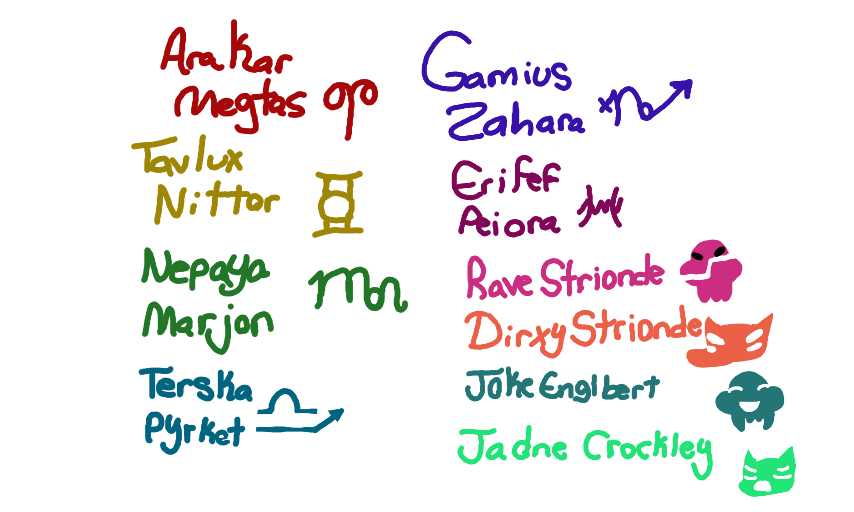 Arakar
Megtas
Tavlux
Nittor
Nepaya
Marjon
Terska
Pyrket
Gamius
Zahara
Erifef
Peiora
Rave Strionde
Dirxy Strionde
Joke Englbert
Jadne Crockley